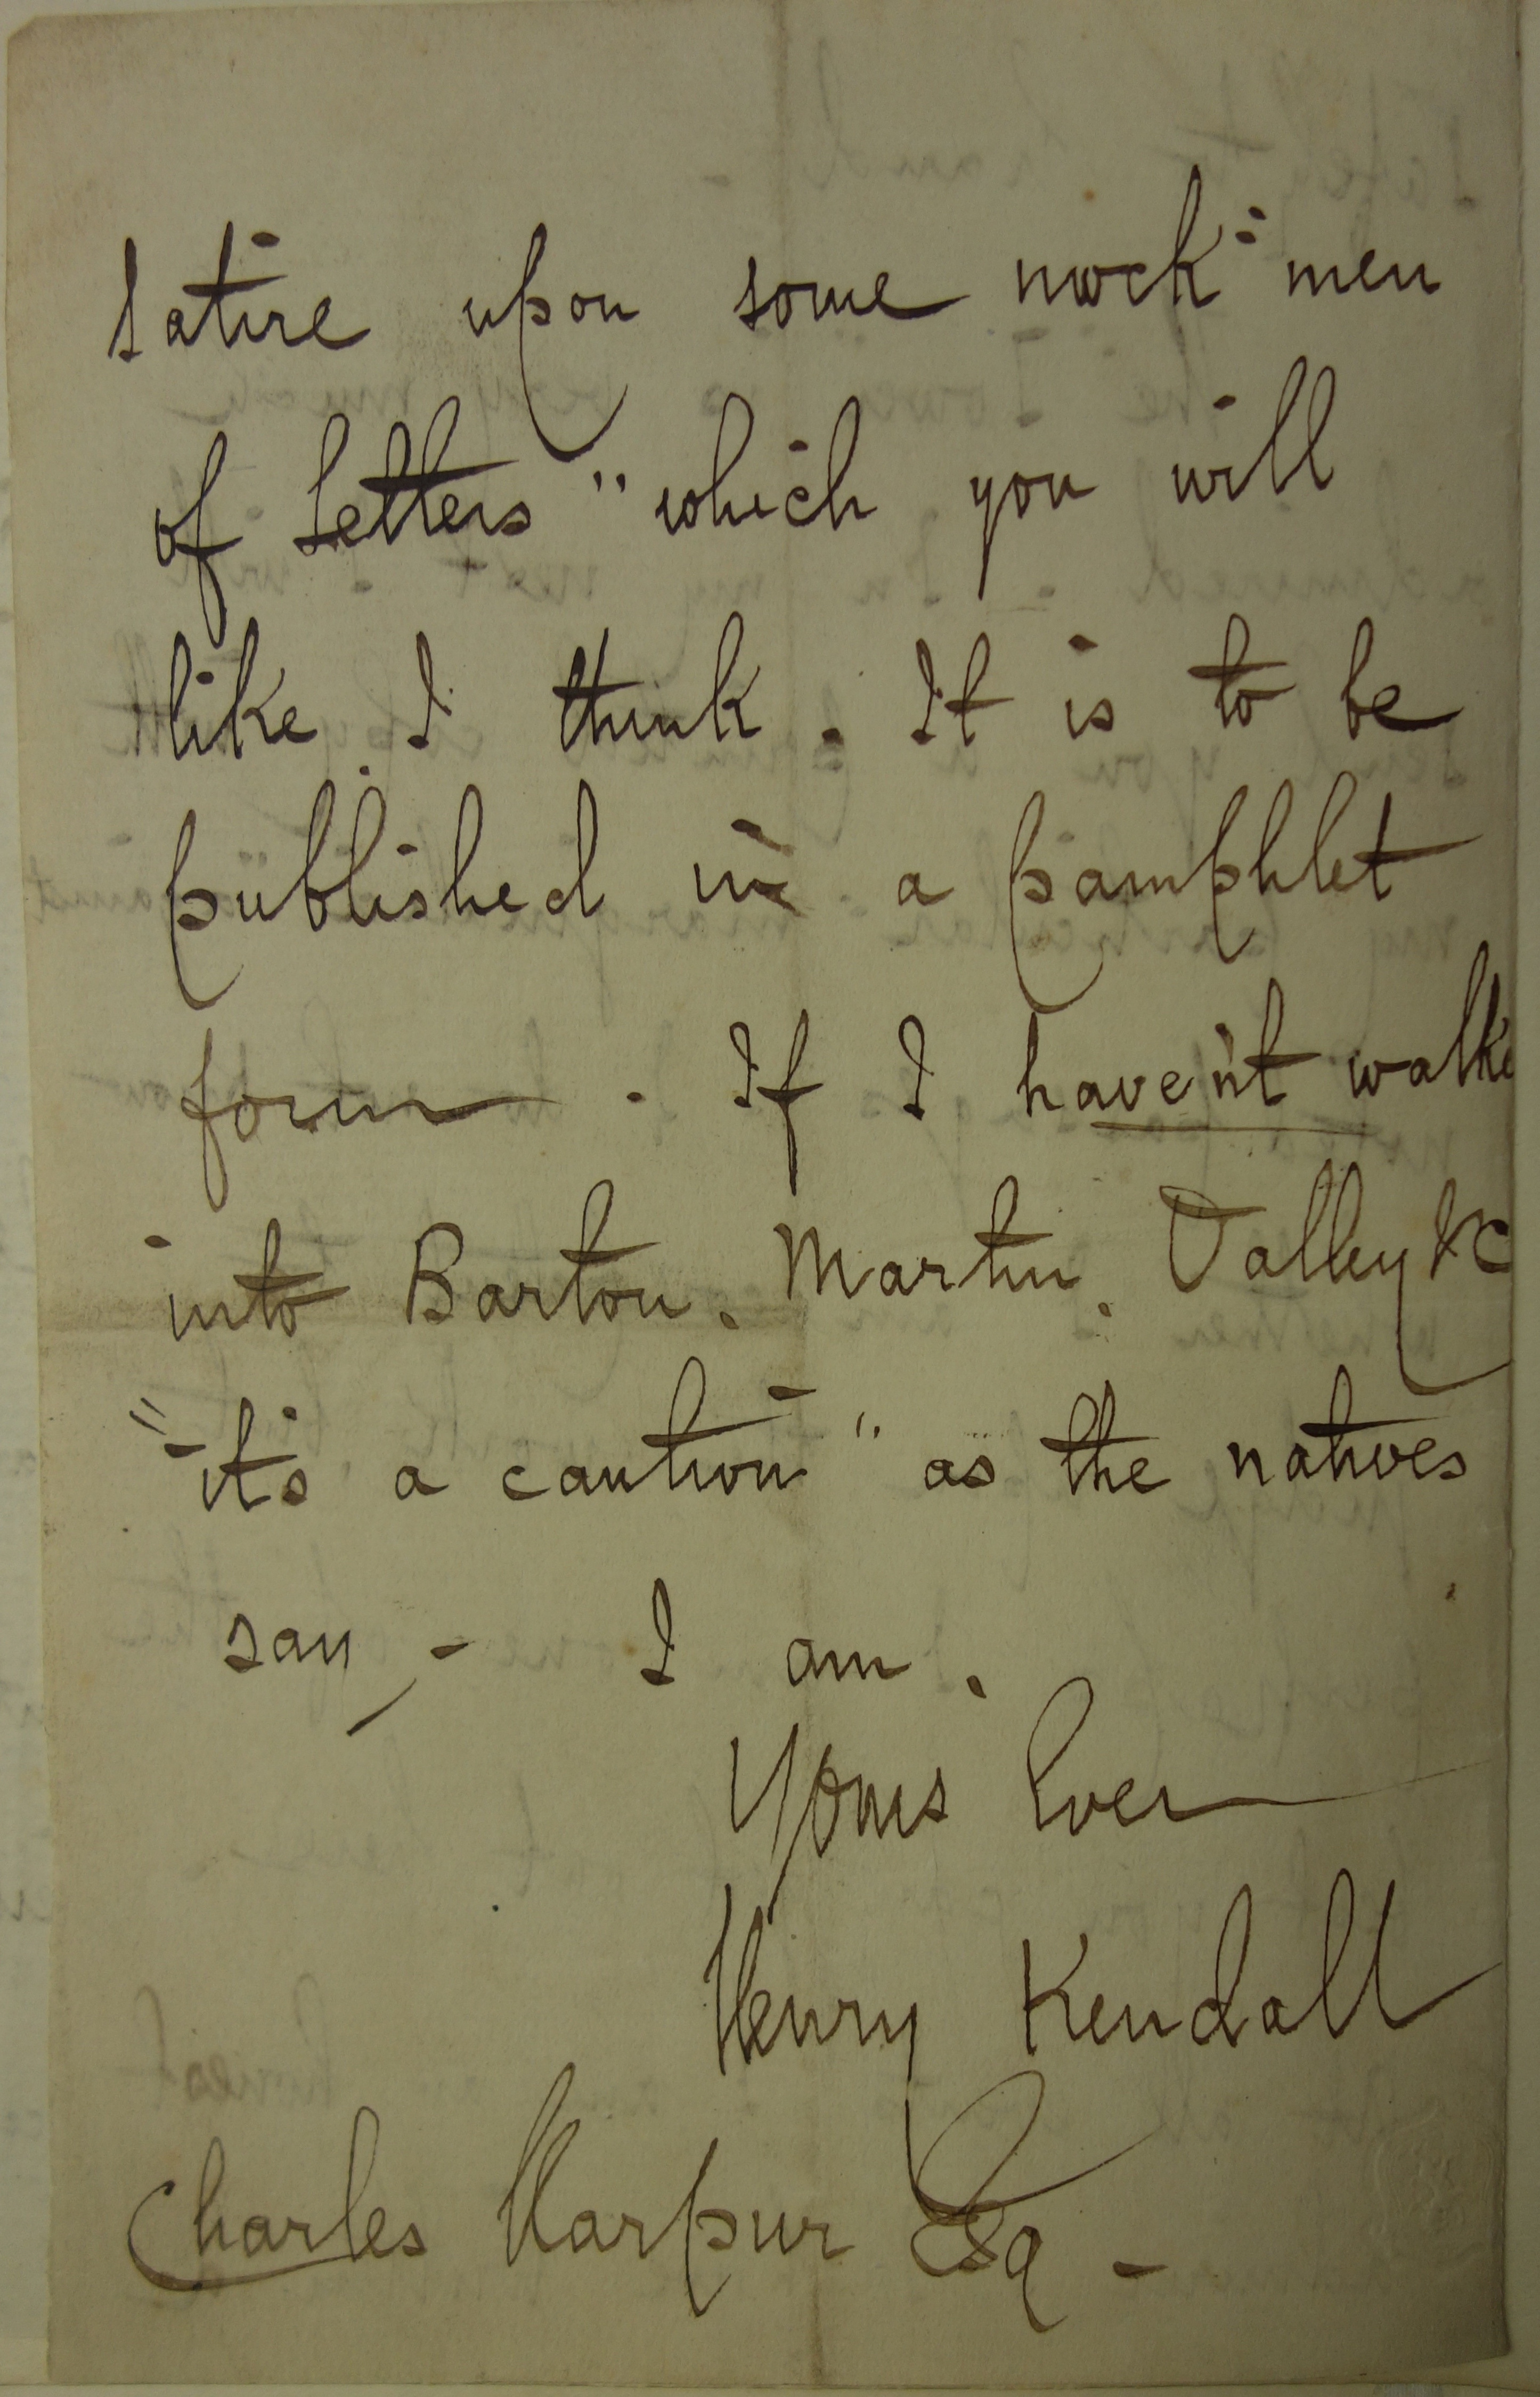 satire upon some mock "men
of letters" which you will
like, I think. It is to be
published in a pamphlet
form. If I haven't walke
into Barton. Martin. Dalley &c
"it's a caution" as the natives
say, - I am,
Yours Ever
Henry Kendall
Charles Harpur Esq -